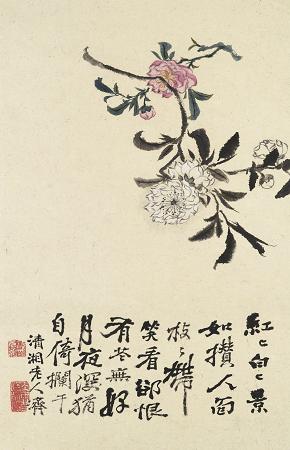 紅〻白〻景
如攢人面
枝〻鮮
笑看卻恨
有花無好
月夜深猶
自倚欄干
清湘老人齊